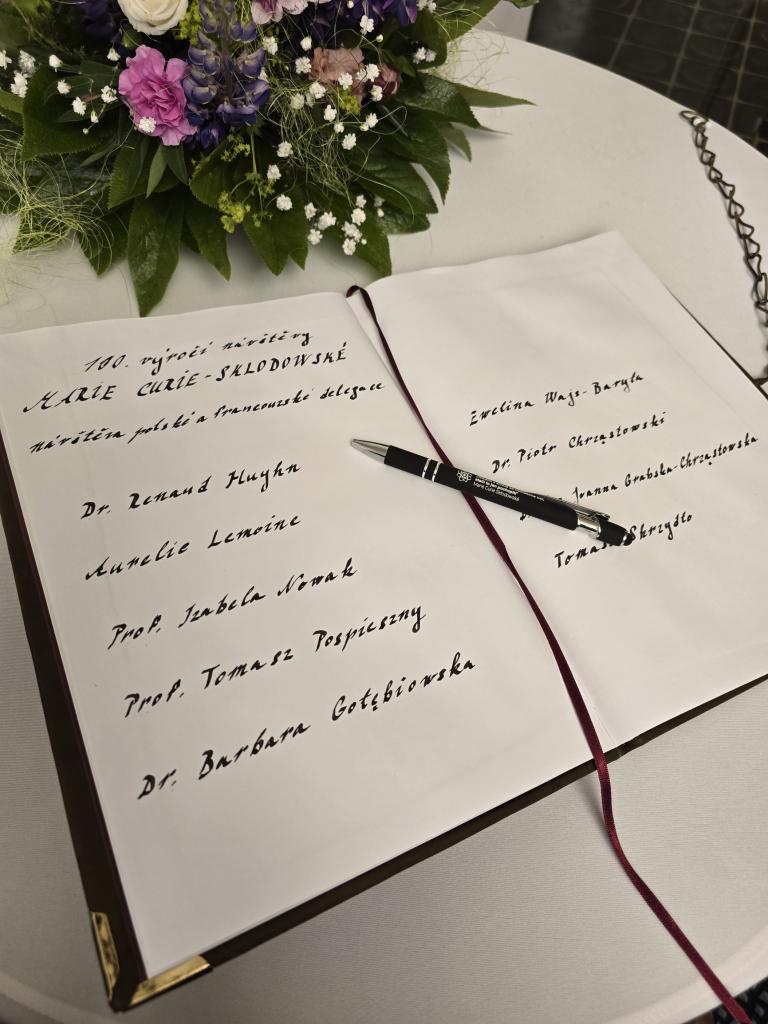 100. výročí návštěvy
MARIE CURIE-SKLODOWSKÉ
návštěva polské a francouzské delegace
Dr. Renaud Huynh
Aurelie Lemoine
Prof. Izabela Nowak
Prof. Tomasz Pospieszny
Dr. Barbara Gołębiowska
Ewelina Wajs-Baryła
Dr. Piotr Chrząstowski
Joanna Grabska-Chrząstowska
Tomasz Skrzydło
Marie Curie Skłodowská